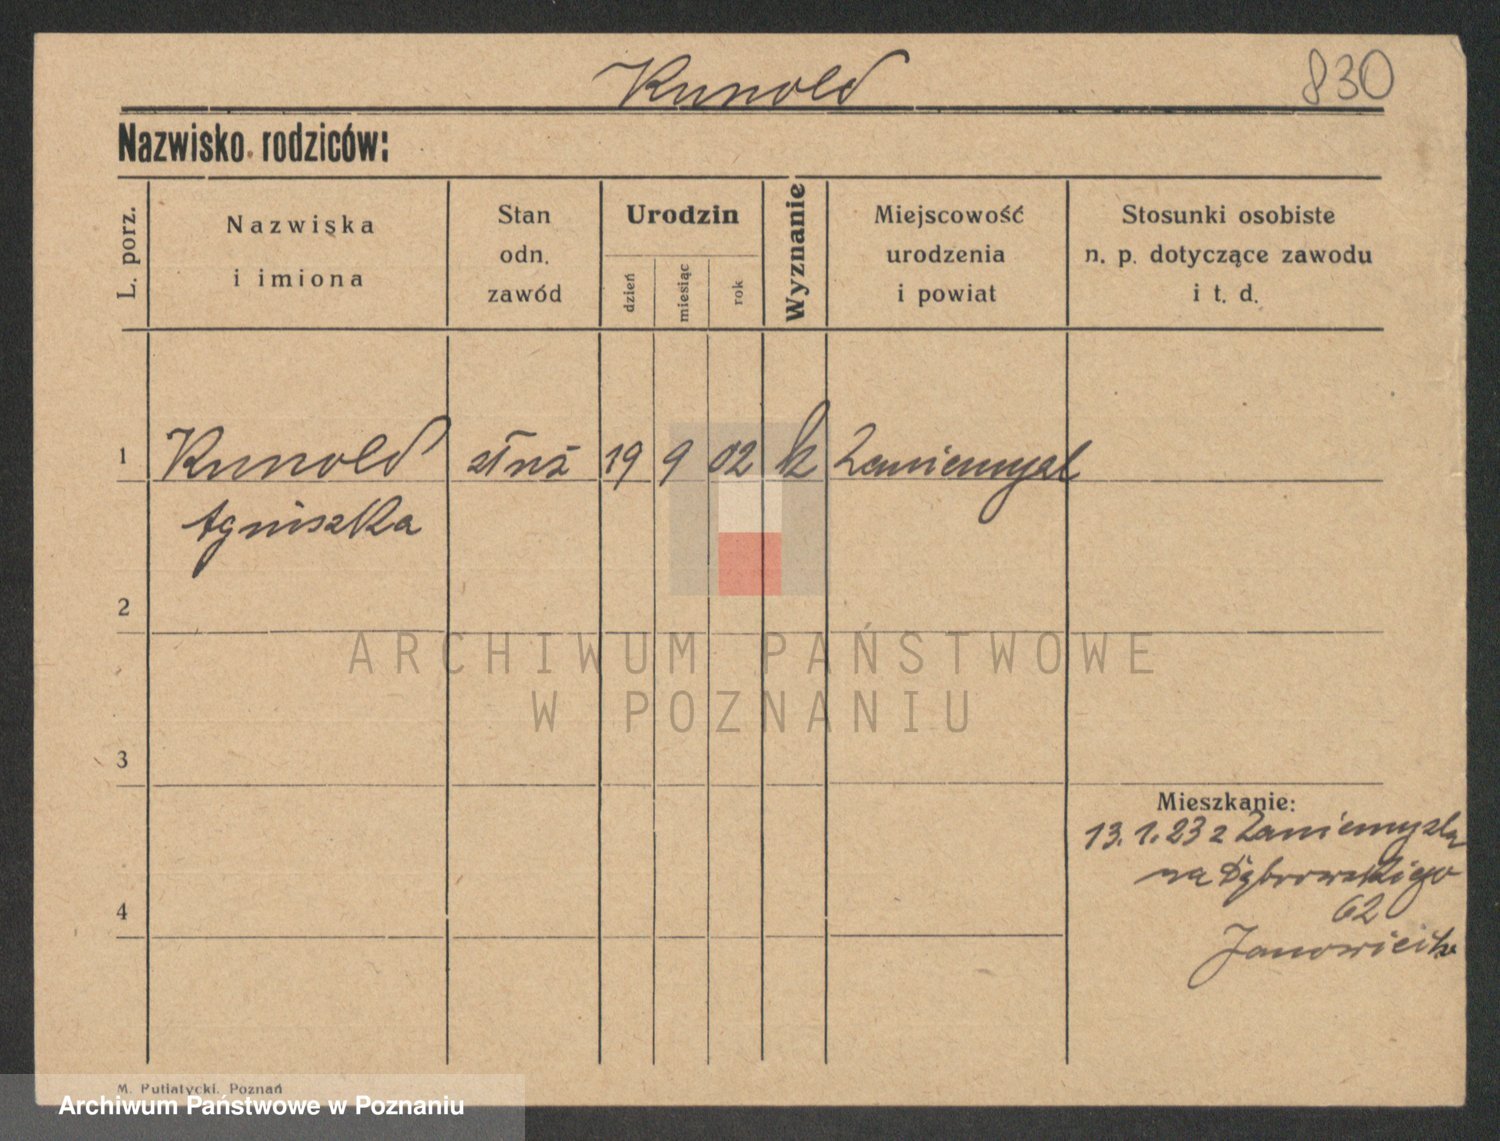 Kunold
830
Nazwisko rodziców:
L. porz.
Nazwiska
i imiona
Stan
odn.
zawód
Urodzin
dzień
miesiąc
rok
Wyznanie
Miejscowość
urodzenia
i powiat
Stosunki osobiste
n. p. dotyczące zawodu
i t. d.
1
Kunold
służ
19
9
02
k
Zaniemyśl
Agniszka
2
ARCHIWUM PAŃSTWOWE
W POZNANIU
3
Mieszkanie:
13.1.23 z Zaniemyśla
na Dąbrowskiego
62
4
M. Putiatycki, Poznań
Archiwum Państwowe w Poznaniu